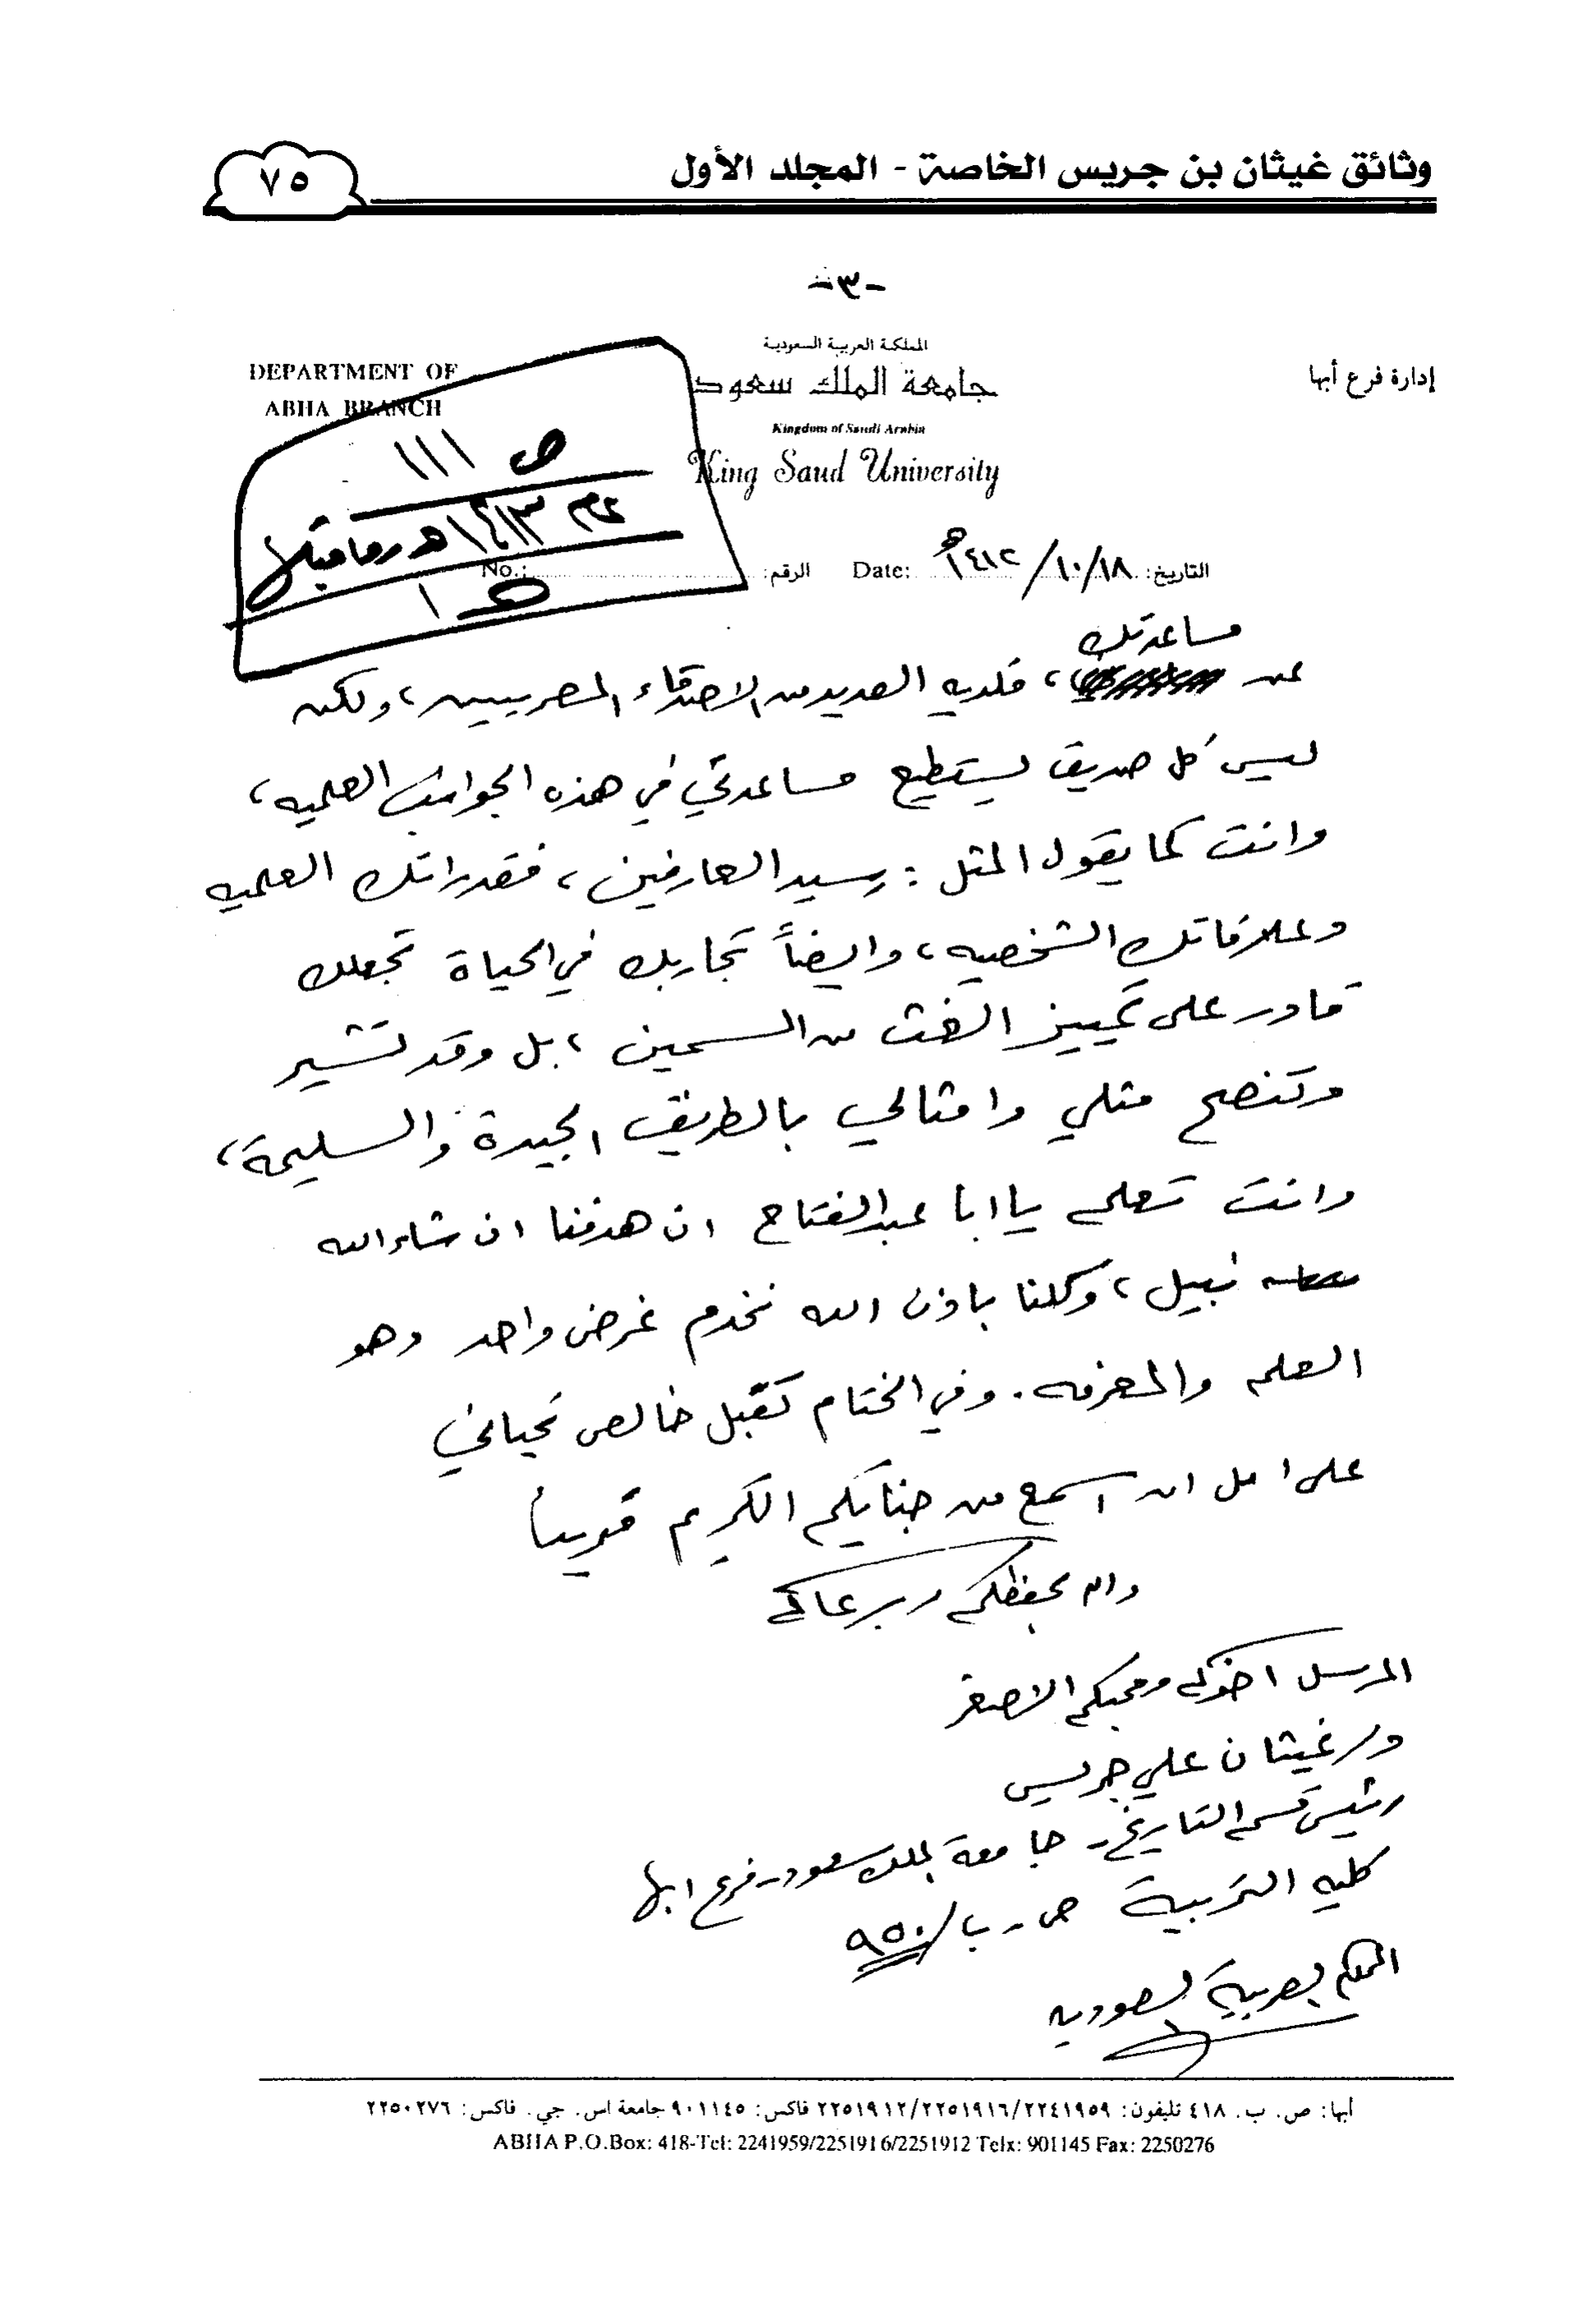 وثائق غيثان بن جريس الخاصة - المجلد الأول
٧٥
-٣-
المملكة العربية السعودية
جامعة الملك سعود
Kingdom of Saudi Arabia
King Saud University
إدارة فرع أبها
DEPARTMENT OF
ABHA BRANCH
ص ١١١
عام ١٤١٣هـ وما قبلها
التاريخ: ١٠/١٨/ ١٤١٢هـ Date: الرقم: No.:
مساعدتك
عن ، فلديه العديد من الاصدقاء المصريين، ولكن
ليس كل صديق يستطيع مساعدتي في هذه الجوانب العلميه،
وانت كما يقول المثل: سيد العارفين، فقدراتك العلميه
وعلاقاتك الشخصيه، وايضاً تجاربك في الحياة تجعلك
قادر على تمييز الغث من السمين، بل وقد تشير
وتنصح مثلي وامثالي بالطريق الجيدة والسليمة،
وانت تعلم يا ابا عبدالفتاح ان هدفنا ان شاء الله
نبيل، وكلنا باذن الله نخدم غرض واحد وهو
العلم والمعرفه. وفي الختام تقبل خالص تحياتي
على امل ان اسمع من جنابكم الكريم قريباً
والله يحفظكم ويرعاكم
المرسل اخوكم ومحبكم الاصغر
د/ غيثان علي جريس
رئيس قسم التاريخ - جامعة الملك سعود - فرع ابها
كليه التربية ص.ب/ ٩٥٠
المملكه العربية السعوديه
أبها: ص. ب. ٤١٨ تليفون: ٢٢٥١٩١٢/٢٢٥١٩١٦/٢٢٤١٩٥٩ فاكس: ٩٠١١٤٥ جامعة اس. جي. فاكس: ٢٢٥٠٢٧٦
ABHA P.O.Box: 418-Tel: 2241959/2251916/2251912 Telx: 901145 Fax: 2250276